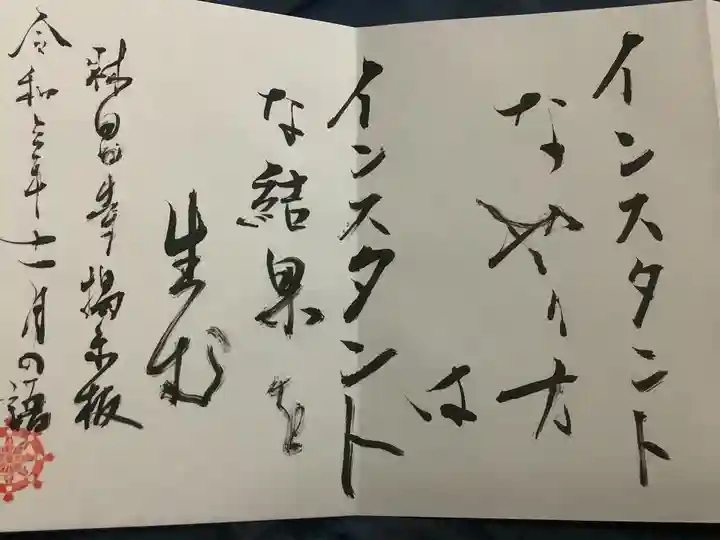 インスタント
なやり方
は
インスタント
な結果を
生む
林昌寺掲示板
令和六年十一月の語